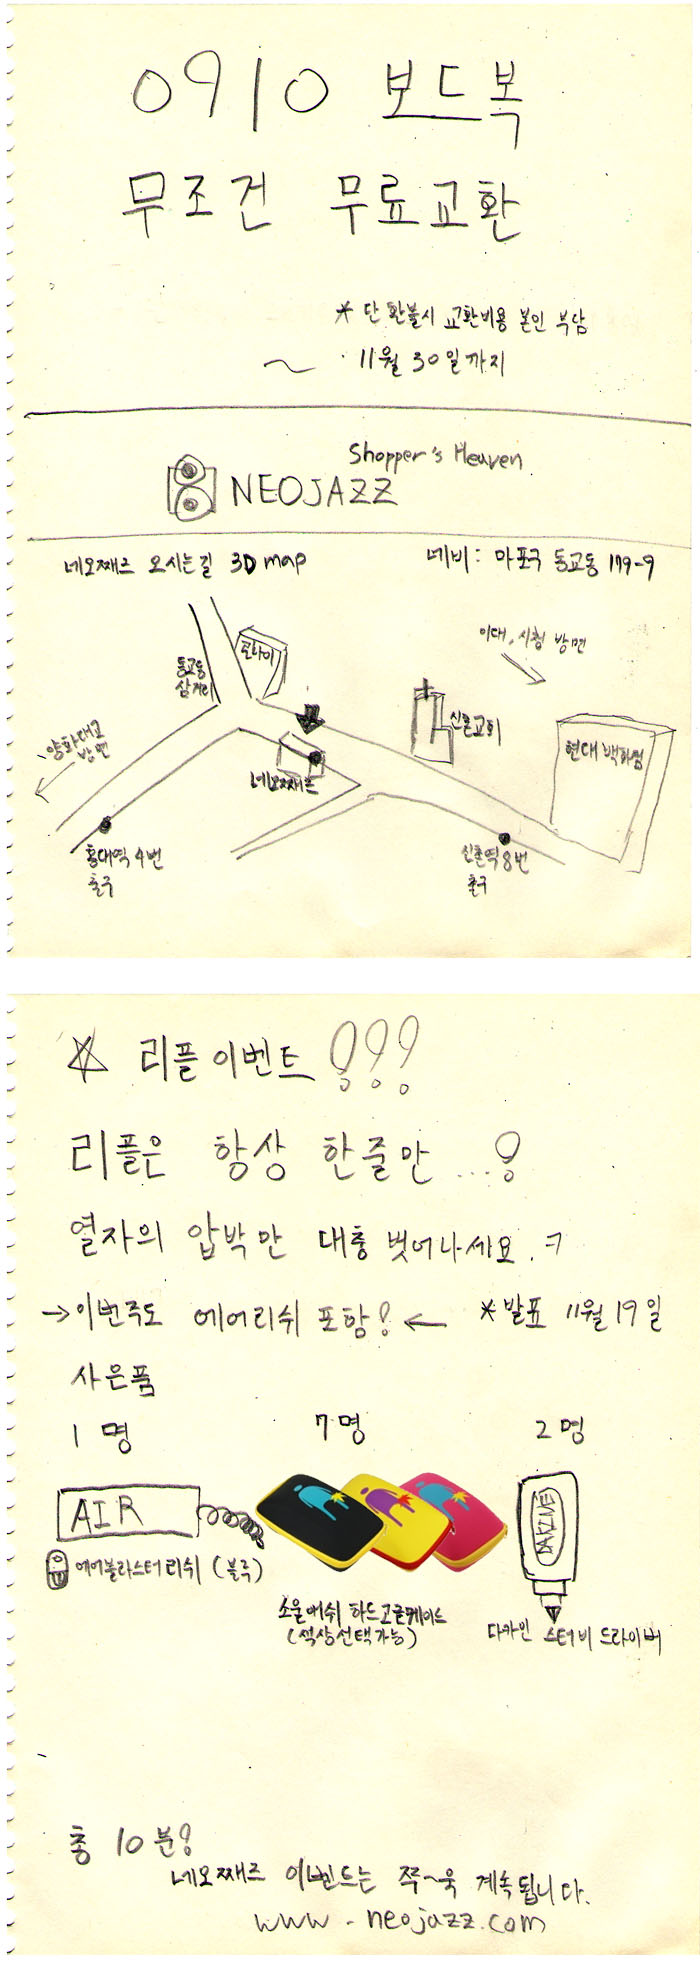 0910 보드복
무조건 무료교환
* 단 환불시 교환비용 본인 부담
~ 11월 30일까지
Shopper's Heaven
NEOJAZZ
네오째즈 오시는길 3D map
네비: 마포구 동교동 179-9
이대, 시청 방면
동교동
삼거리
신촌교회
현대 백화점
양화대교
방면
네오째즈
홍대역 4번
출구
신촌역 8번
출구
☆ 리플이벤트 !!!
리플은 항상 한줄만 ...!
열자의 압박만 대충 벗어나세요. ㅋ
→이번주도 에어리쉬 포함! ← *발표 11월 19일
사은품
1 명 7 명 2 명
AIR
DAKINE
에어블라스터 리쉬 (블루)
소울에쉬 하드고글케이스
(색상선택가능)
다카인 스터비 드라이버
총 10분!
네오째즈 이벤트는 쭈~욱 계속됩니다.
www.neojazz.com